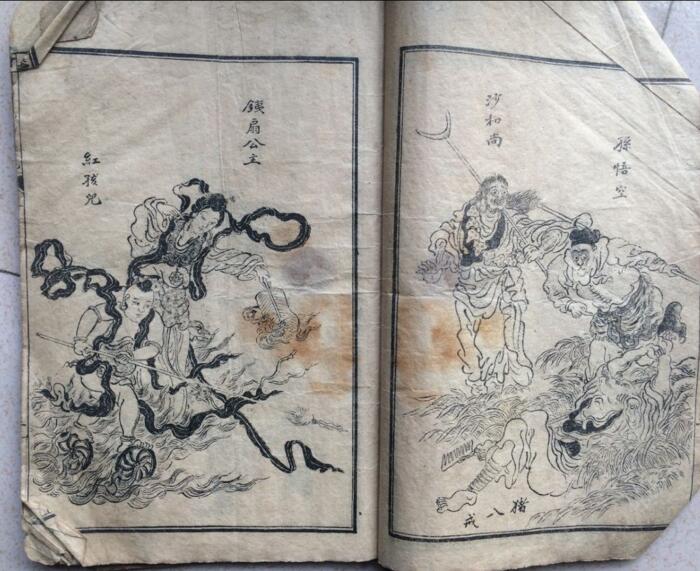 孫悟空
沙和尚
猪八戒
鐵扇公主
紅孩兒